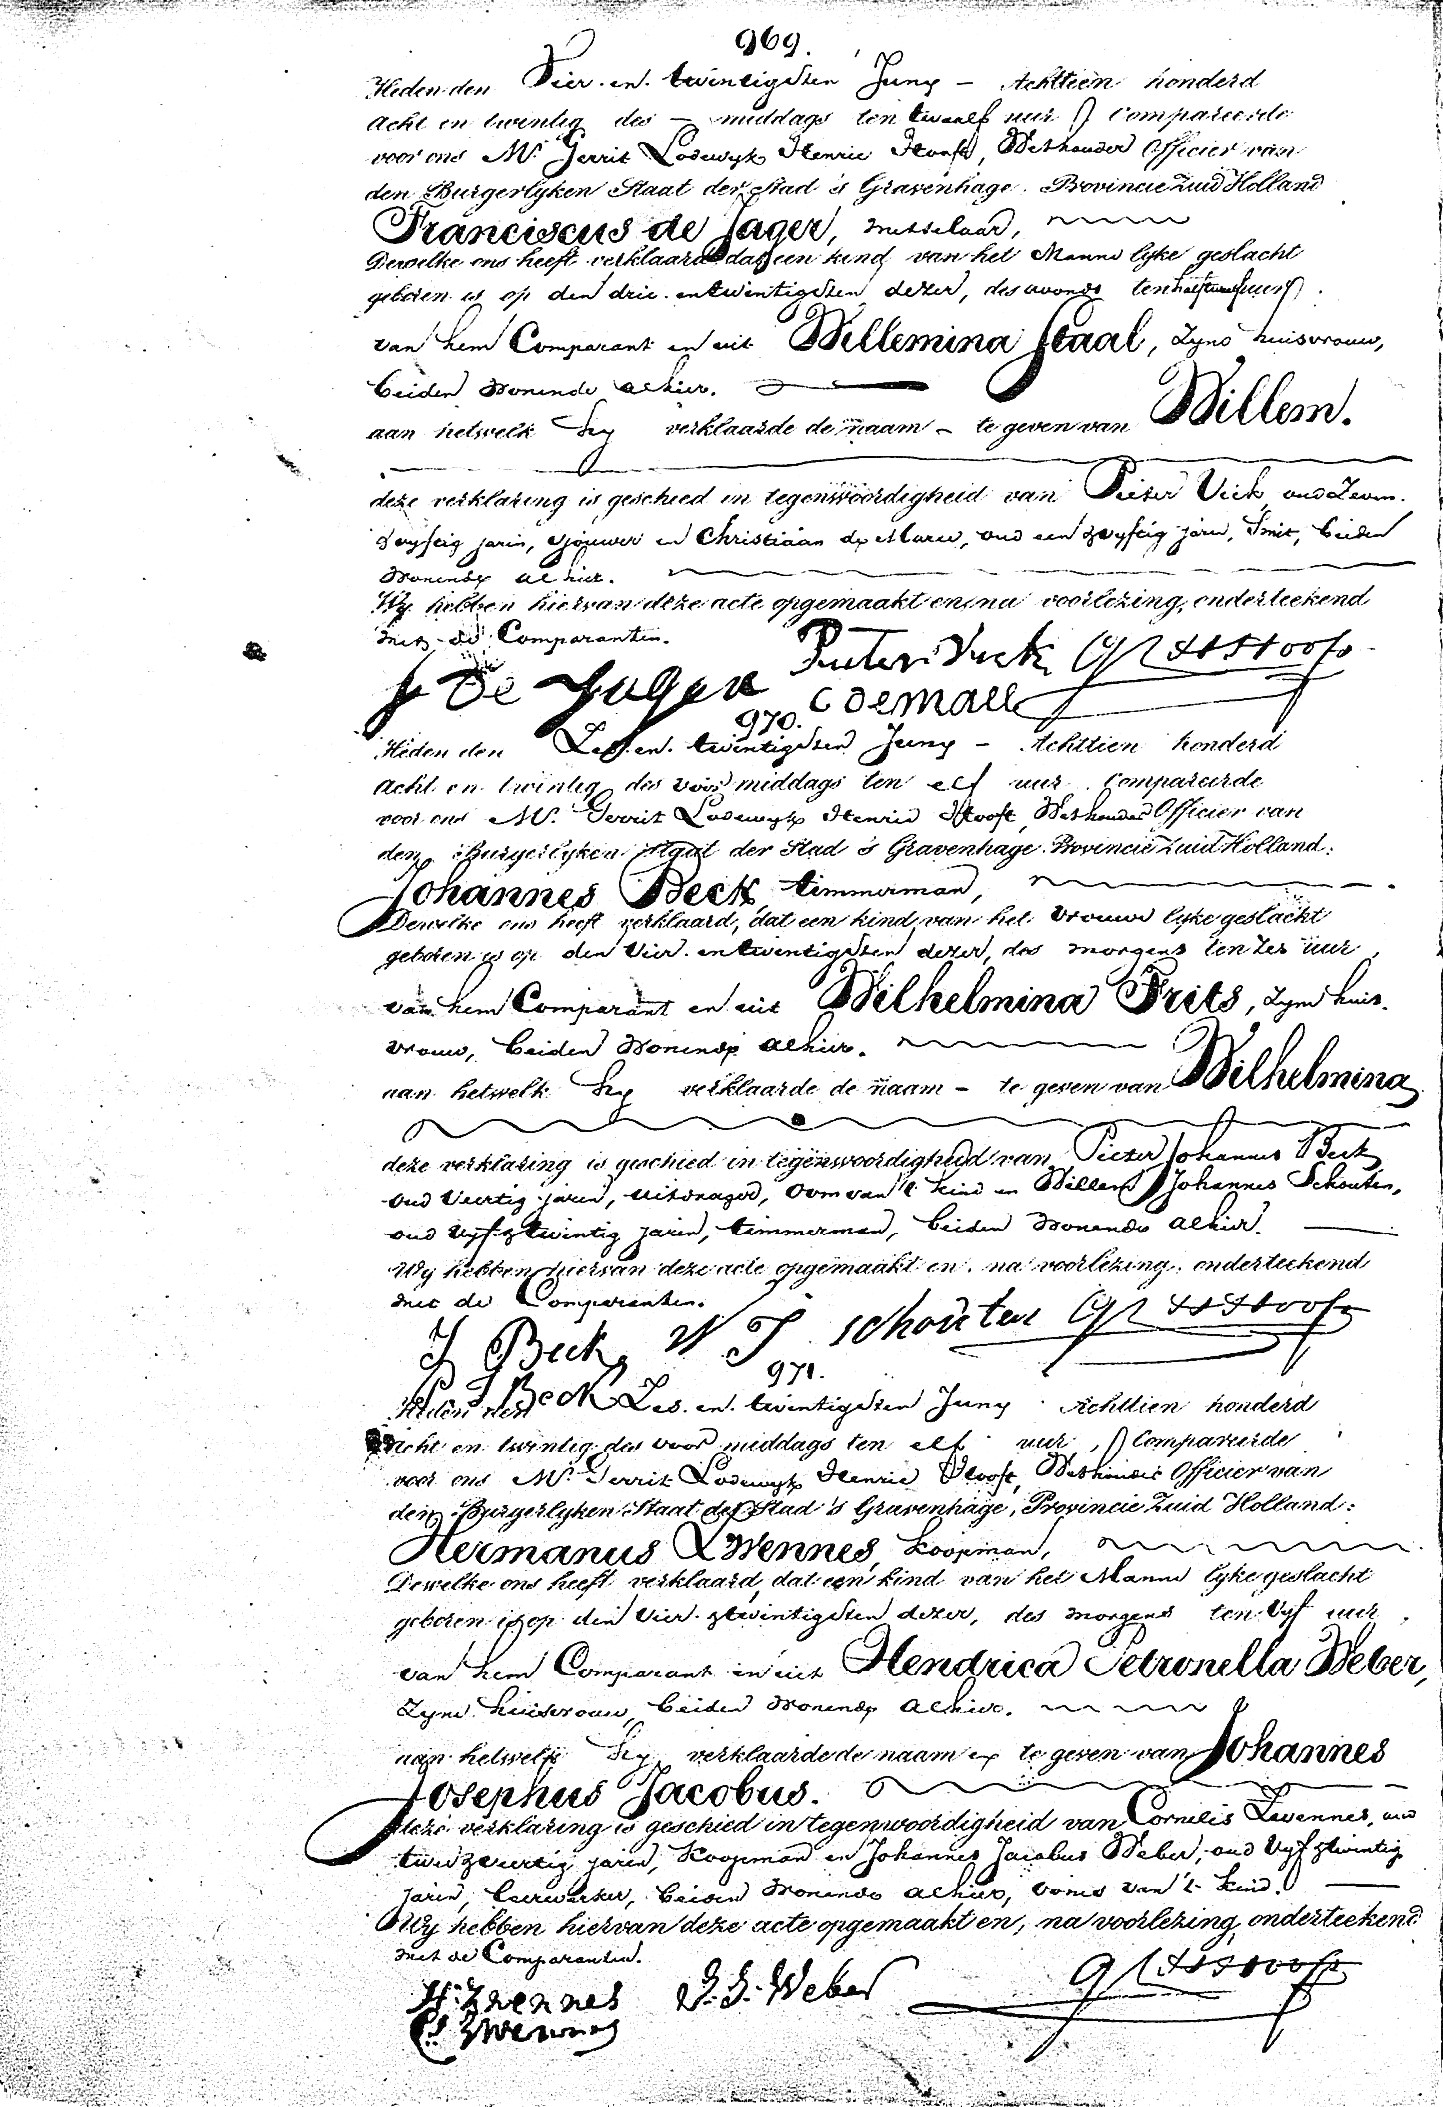 969.
Heden den Vier en twintigsten Juny – Achttien honderd
Acht en twintig des – middags ten twaalf uur compareerde
voor ons Mr. Gerrit Lodewyk Henrie Hooft, Wethouder Officier van
den Burgerlyken Staat der Stad 's Gravenhage. Provincie Zuid Holland
Franciscus de Jager, metselaar,
Dewelke ons heeft verklaard dat een kind van het Manne lyke geslacht
geboren is op den drie en twintigsten dezer, des avonds ten half twaalf uur
van hem Comparant en uit Willemina Staal, zyne huisvrouw,
beiden wonende alhier.
aan hetwelk hy verklaarde de naam – te geven van Willem.
deze verklaring is geschied in tegenwoordigheid van Pieter Vick, oud Zeven
& vyftig jaren, en Christiaan de Maree, oud een & vyftig jaren, Smit, beiden
wonende alhier.
Wy hebben hiervan deze acte opgemaakt en, na voorlezing, onderteekend
met de Comparanten.
Pieter Vick GLHHooft
F De Jager C DEMAREE
970.
Heden den Zes en twintigsten Juny – Achttien honderd
Acht en twintig des voor middags ten elf uur compareerde
voor ons Mr. Gerrit Lodewyk Henrie Hooft, Wethouder Officier van
den Burgerlyken Staat der Stad 's Gravenhage. Provincie Zuid Holland:
Johannes Beck, timmerman,
Dewelke ons heeft verklaard, dat een kind van het Vrouwe lyke geslacht
geboren is op den Vier en twintigsten dezer, des morgens ten zes uur,
van hem Comparant en uit Wilhelmina Frits, zyne huis-
vrouw, beiden wonende alhier.
aan hetwelk hy verklaarde de naam – te geven van Wilhelmina
deze verklaring is geschied in tegenwoordigheid van Pieter Johannes Beck
oud Veertig jaren, uitdrager, Oom van 't kind en Willem Johannes Schouten,
oud vyf & twintig jaren, timmerman, beiden wonende alhier.
Wy hebben hiervan deze acte opgemaakt en, na voorlezing, onderteekend
met de Comparanten.
J Beck W J Schouten GLHHooft
971.
P J Beck
Heden den Zes en twintigsten Juny Achttien honderd
Acht en twintig des voor middags ten elf uur, compareerde
voor ons Mr. Gerrit Lodewyk Henrie Hooft, Wethouder Officier van
den Burgerlyken Staat der Stad 's Gravenhage, Provincie Zuid Holland:
Hermanus Zwennes, Koopman,
Dewelke ons heeft verklaard, dat een kind van het Manne lyke geslacht
geboren is op den Vier & twintigsten dezer, des morgens ten vyf uur,
van hem Comparant en uit Hendrica Petronella Weber,
zyne huisvrouw, beiden wonende alhier.
aan hetwelk hy verklaarde de naam en te geven van Johannes
Josephus Jacobus.
deze verklaring is geschied in tegenwoordigheid van Cornelis Zwennes, oud
twee & veertig jaren, Koopman en Johannes Jacobus Weber, oud Vyf & twintig
jaren, beiden wonende alhier, ooms van 't kind.
Wy hebben hiervan deze acte opgemaakt en, na voorlezing, onderteekend
met de Comparanten.
H. Zwennes J. J. Weber GLHHooft
Cs Zwennes